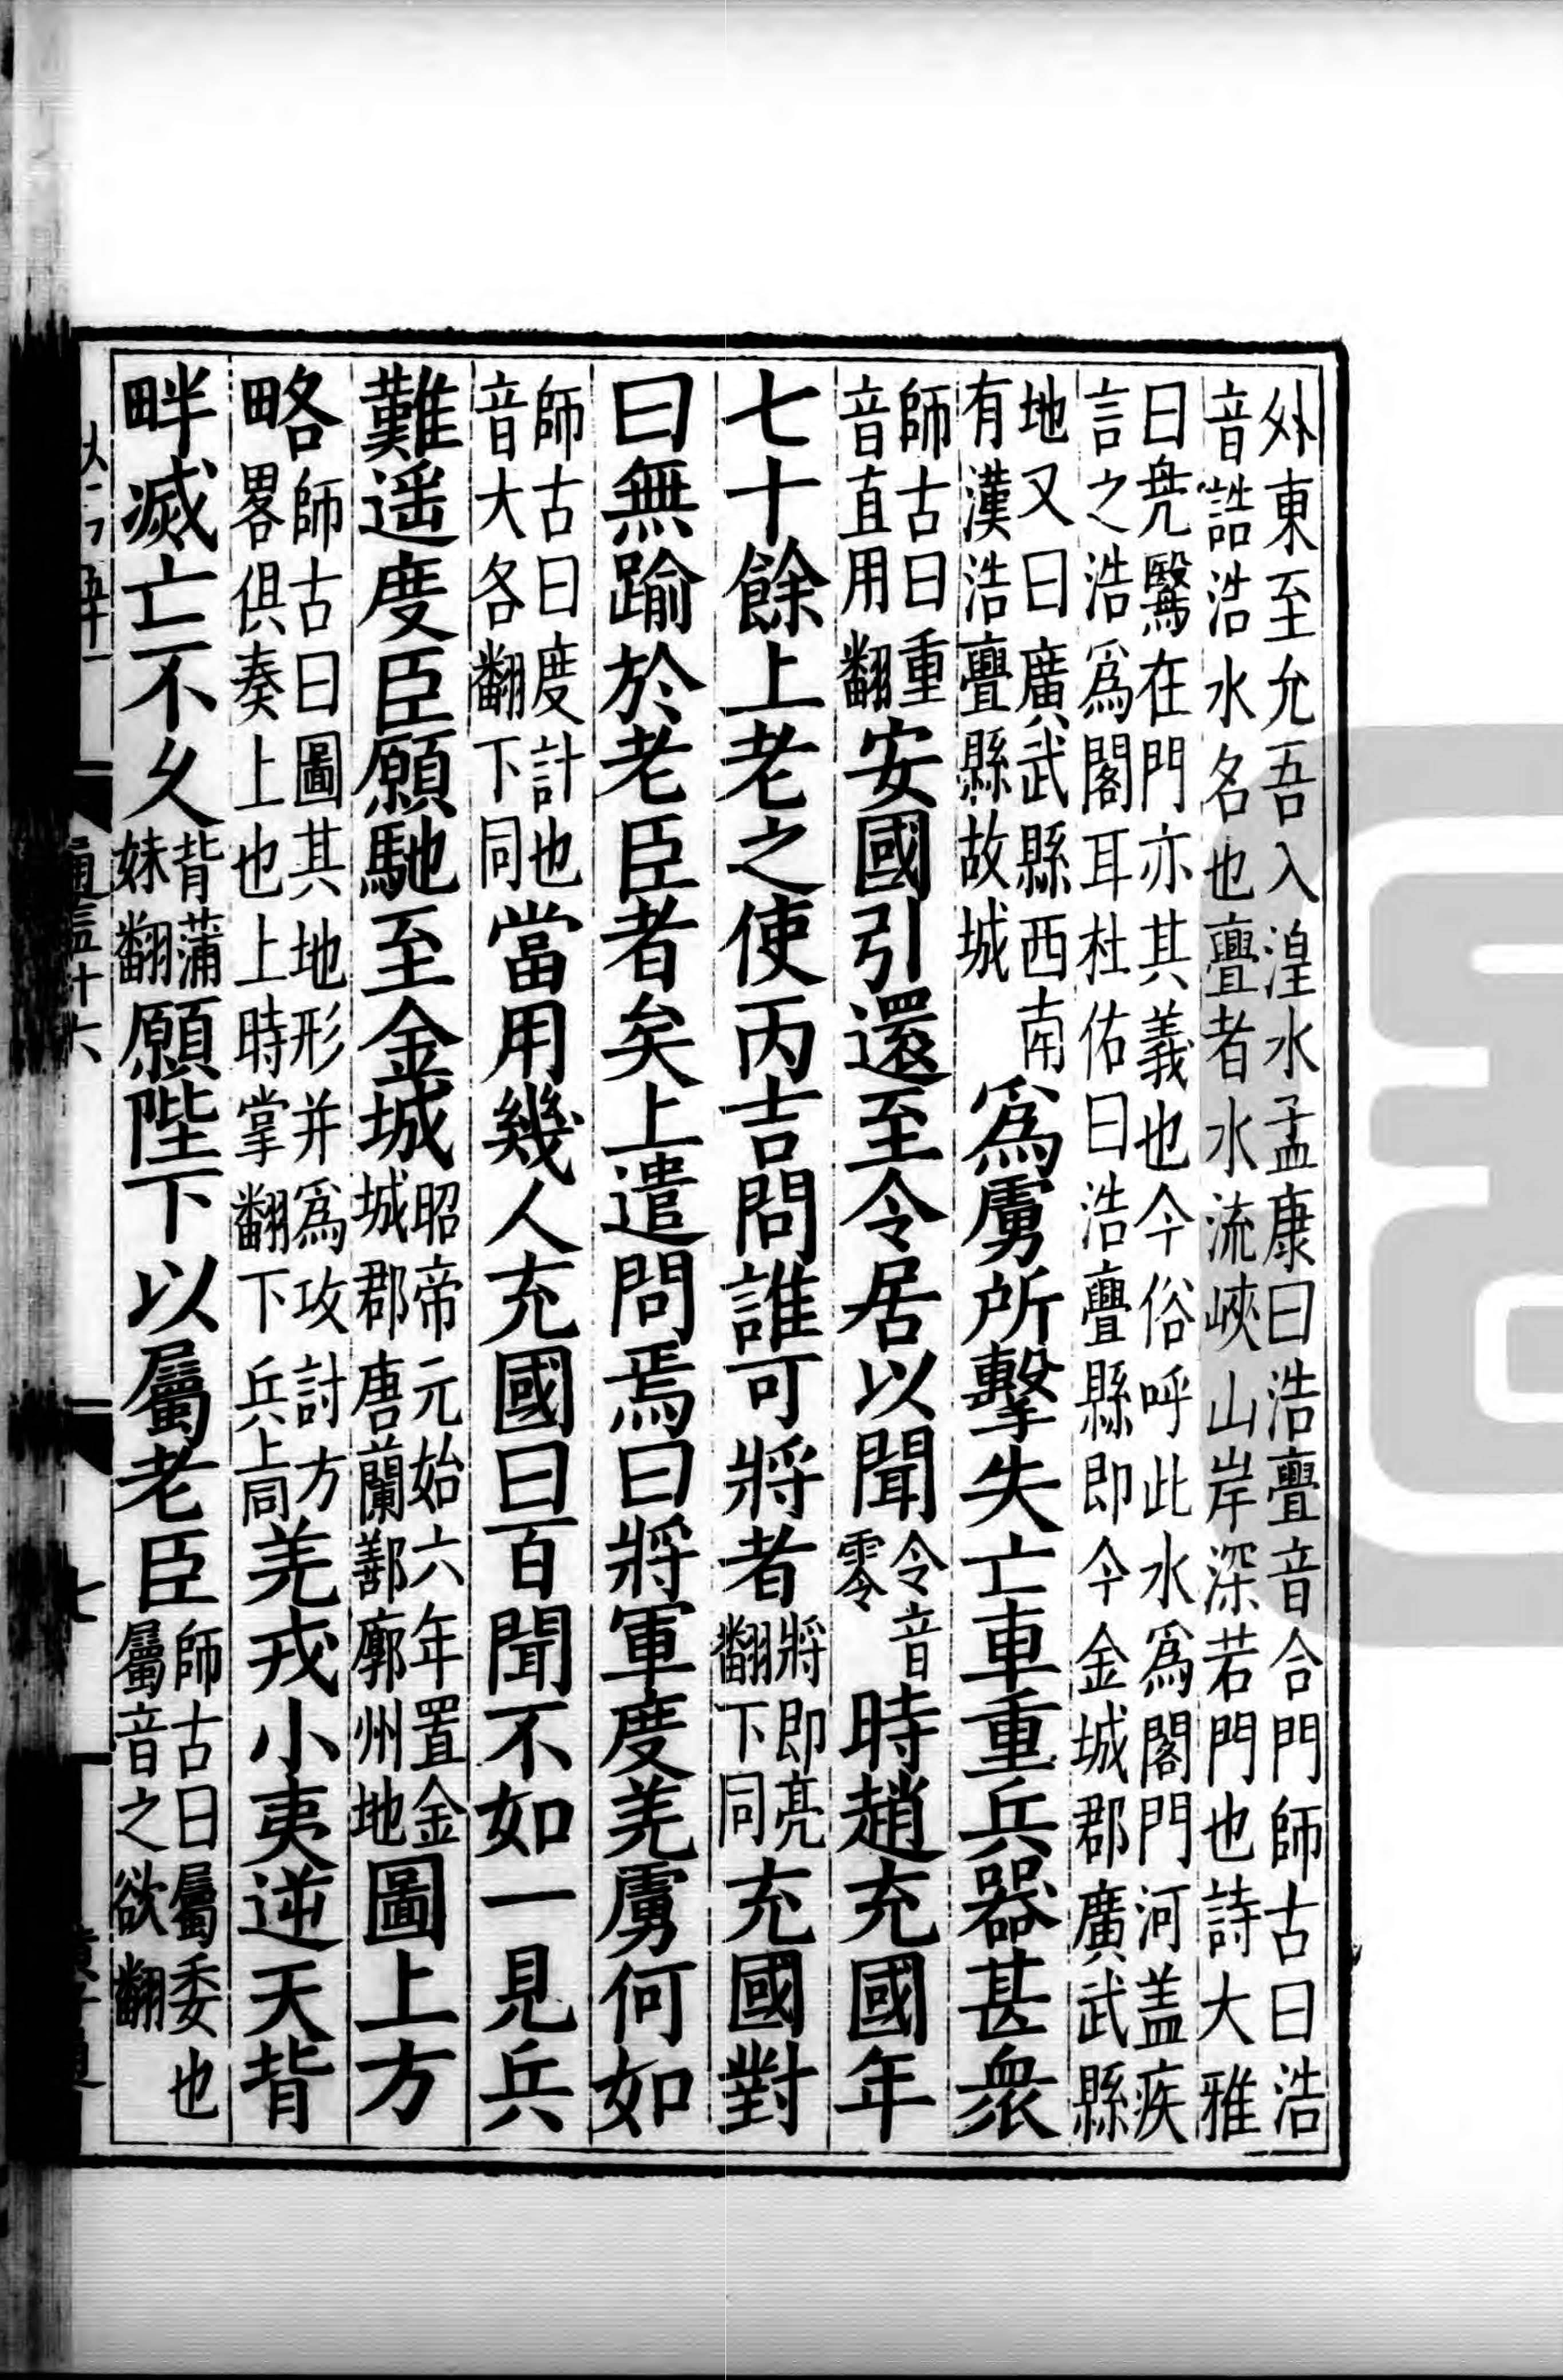 外東至允吾入湟水孟康曰浩亹音合門師古曰浩
音誥浩水名也亹者水流峽山岸深若門也詩大雅
曰鳧鷖在亹亦其義也今俗呼此水爲閤門河盖疾
言之浩爲閤耳杜佑曰浩亹縣即今金城郡廣武縣
地又曰廣武縣西南
有漢浩亹縣故城
爲虜所擊失亡車重兵器甚衆
師古曰重
音直用翻
安國引還至令居以聞
令音
零
時趙充國年
七十餘上老之使丙吉問誰可將者
將即亮
翻下同
充國對
曰無踰於老臣者矣上遣問焉曰將軍度羌虜何如
師古曰度計也
音大各翻下同
當用幾人充國曰百聞不如一見兵
難遥度臣願馳至金城
昭帝元始六年置金
城郡唐蘭鄯廓州地
圖上方
略
師古曰圖其地形并爲攻討方
畧俱奏上也上時掌翻下兵上同
羌戎小夷逆天背
畔滅亡不久
背蒲
妹翻
願陛下以屬老臣
師古曰屬委也
屬音之欲翻